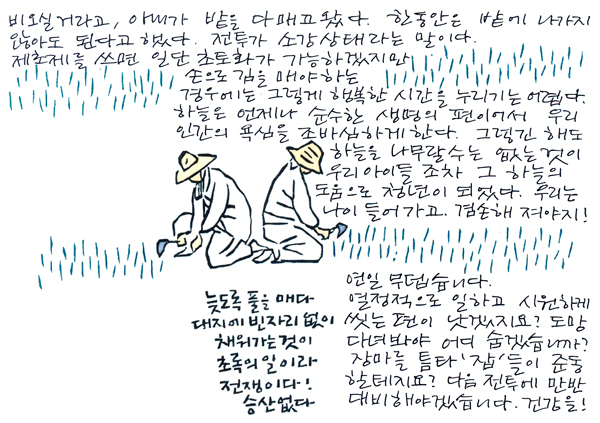 비오실거라고, 아내가 밭을 다매고 왔다. 한동안은 밭에 나가지
않아도 된다고 했다. 전투가 소강상태라는 말이다.
제초제를 쓰면 일단 초토화가 가능하겠지만
손으로 김을 매야 하는
경우에는 그렇게 행복한 시간을 누리기는 어렵다.
하늘은 언제나 순수한 생명의 편이어서 우리
인간의 욕심을 조바심하게 한다. 그렇긴 해도
하늘을 나무랄수는 없는 것이
우리아이들 조차 그 하늘의
도움으로 장년이 되었다. 우리는
나이 들어가고. 겸손해 져야지!
연일 무덥습니다.
열정적으로 일하고 시원하게
씻는 편이 낫겠지요? 도망
다녀봐야 어디 숨겠습니까?
장마를 틈타 '잡'들이 준동
할테지요? 다음 전투에 만반
대비해야겠습니다. 건강을!
늦도록 풀을 매다
대지에 빈자리 없이
채워가는 것이
초록의 일이라
전쟁이다!
승산없다